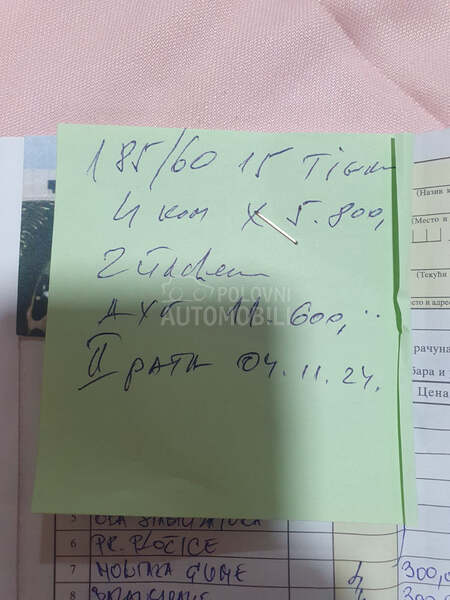 185/60 15 Tigar
4 ком X 5.800,
POLOVNI
AUTOMOBILI
дуг 11 600,
II рата 04.11.24.
(Назив
(Место и
(Текући
рачуна
бара и
Цена
5
6 PR. PLOČICE
7 MONTAŽA GUME 4 300,0
8 300,